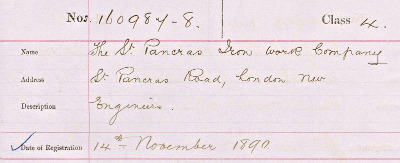 Nos. 160987-8. Class 4.
Name The St Pancras Iron work Company
Address St Pancras Road, London NW
Description Engineers.
Date of Registration 14th November 1890